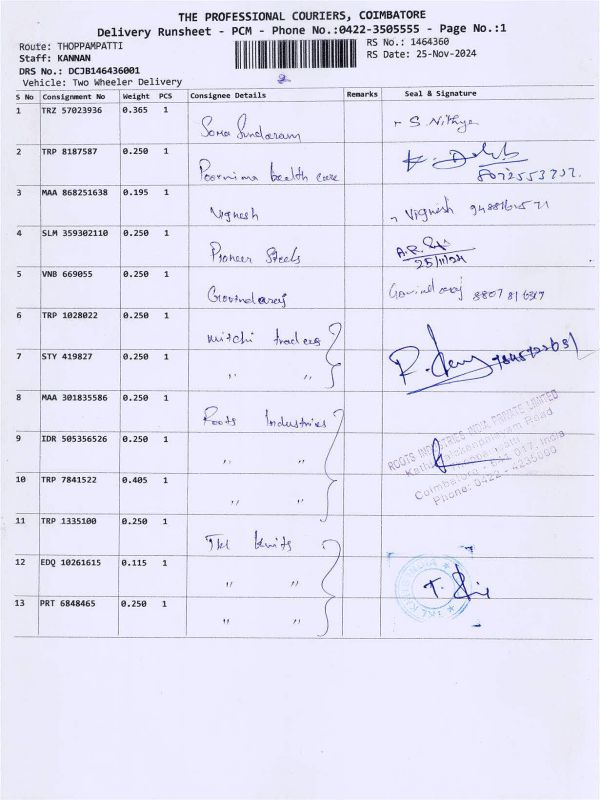 THE PROFESSIONAL COURIERS, COIMBATORE
Delivery Runsheet - PCM - Phone No.:0422-3505555 - Page No.:1
Route: THOPPAMPATTI RS No.: 1464360
Staff: KANNAN RS Date: 25-Nov-2024
DRS No.: DCJB146436001
Vehicle: Two Wheeler Delivery 2
S No Consignment No Weight PCS Consignee Details Remarks Seal & Signature
1 TRZ 57023936 0.365 1 Soma Sundaram S. Nithya
2 TRP 8187587 0.250 1 Poornima health care
3 MAA 868251638 0.195 1 Vignesh Vignesh
4 SLM 359302110 0.250 1 Pioneer Steels 25/11/24
5 VNB 669055 0.250 1 Govindaraj Govindaraj
6 TRP 1028022 0.250 1 mitchi traders
7 STY 419827 0.250 1 " "
8 MAA 301835586 0.250 1 Roots Industries
ROOTS INDUSTRIES INDIA PRIVATE LIMITED
9 IDR 505356526 0.250 1 " "
Road
Coimbatore - 641 017, India
Phone: 0422 - 4236000
10 TRP 7841522 0.405 1 " "
11 TRP 1335100 0.250 1 TKL Knits
12 EDQ 10261615 0.115 1 " "
13 PRT 6848465 0.250 1 " "